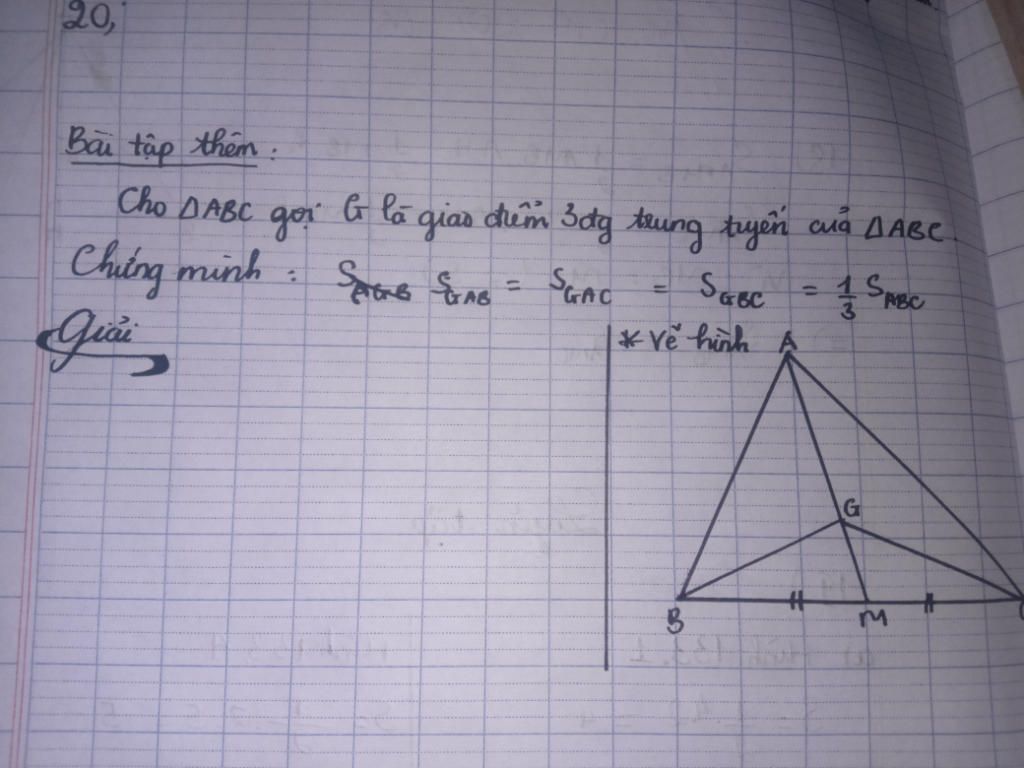 20,
Bài tập thêm :
Cho ΔABC gọi G là giao điểm 3đg trung tuyến của ΔABC
Chứng minh : S_AGB S_GAB = S_GAC = S_GBC = 1/3 S_ABC
Giải
* Vẽ hình
A
G
B
M